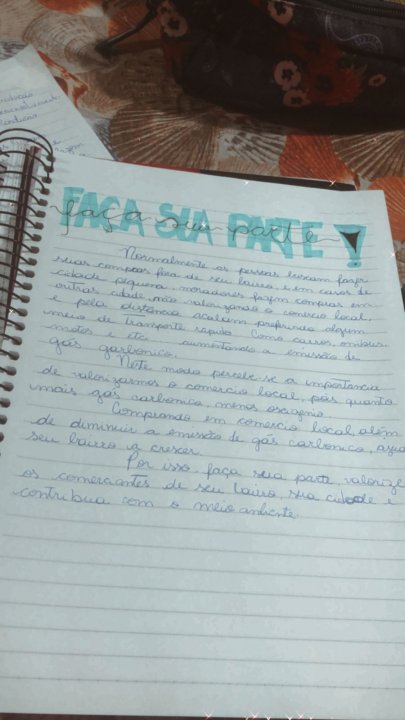 FAÇA SUA PARTE!
faça sua parte
Normalmente as pessoas buscam fazer
suas compras fora de seu bairro, e em casos de
cidade pequena, moradores fazem compras em
outras cidade, não valorizando o comércio local,
e pela distância acabam preferindo algum
meio de transporte rápido. Como carros, ônibus,
motos e etc. aumentando a emissão de
gás garbonico.
Neste modo percebe-se a importancia
de valorizarmos o comercio local, pois quanto
mais gás carbonico, menos oxigenio.
Comprando em comercio local, além
de diminuir a emissão de gás carbonico,
seu bairro a crescer.
Por isso, faça sua parte, valorize
os comerciantes de seu bairro, sua cidade e
contribua com o meio ambiente.